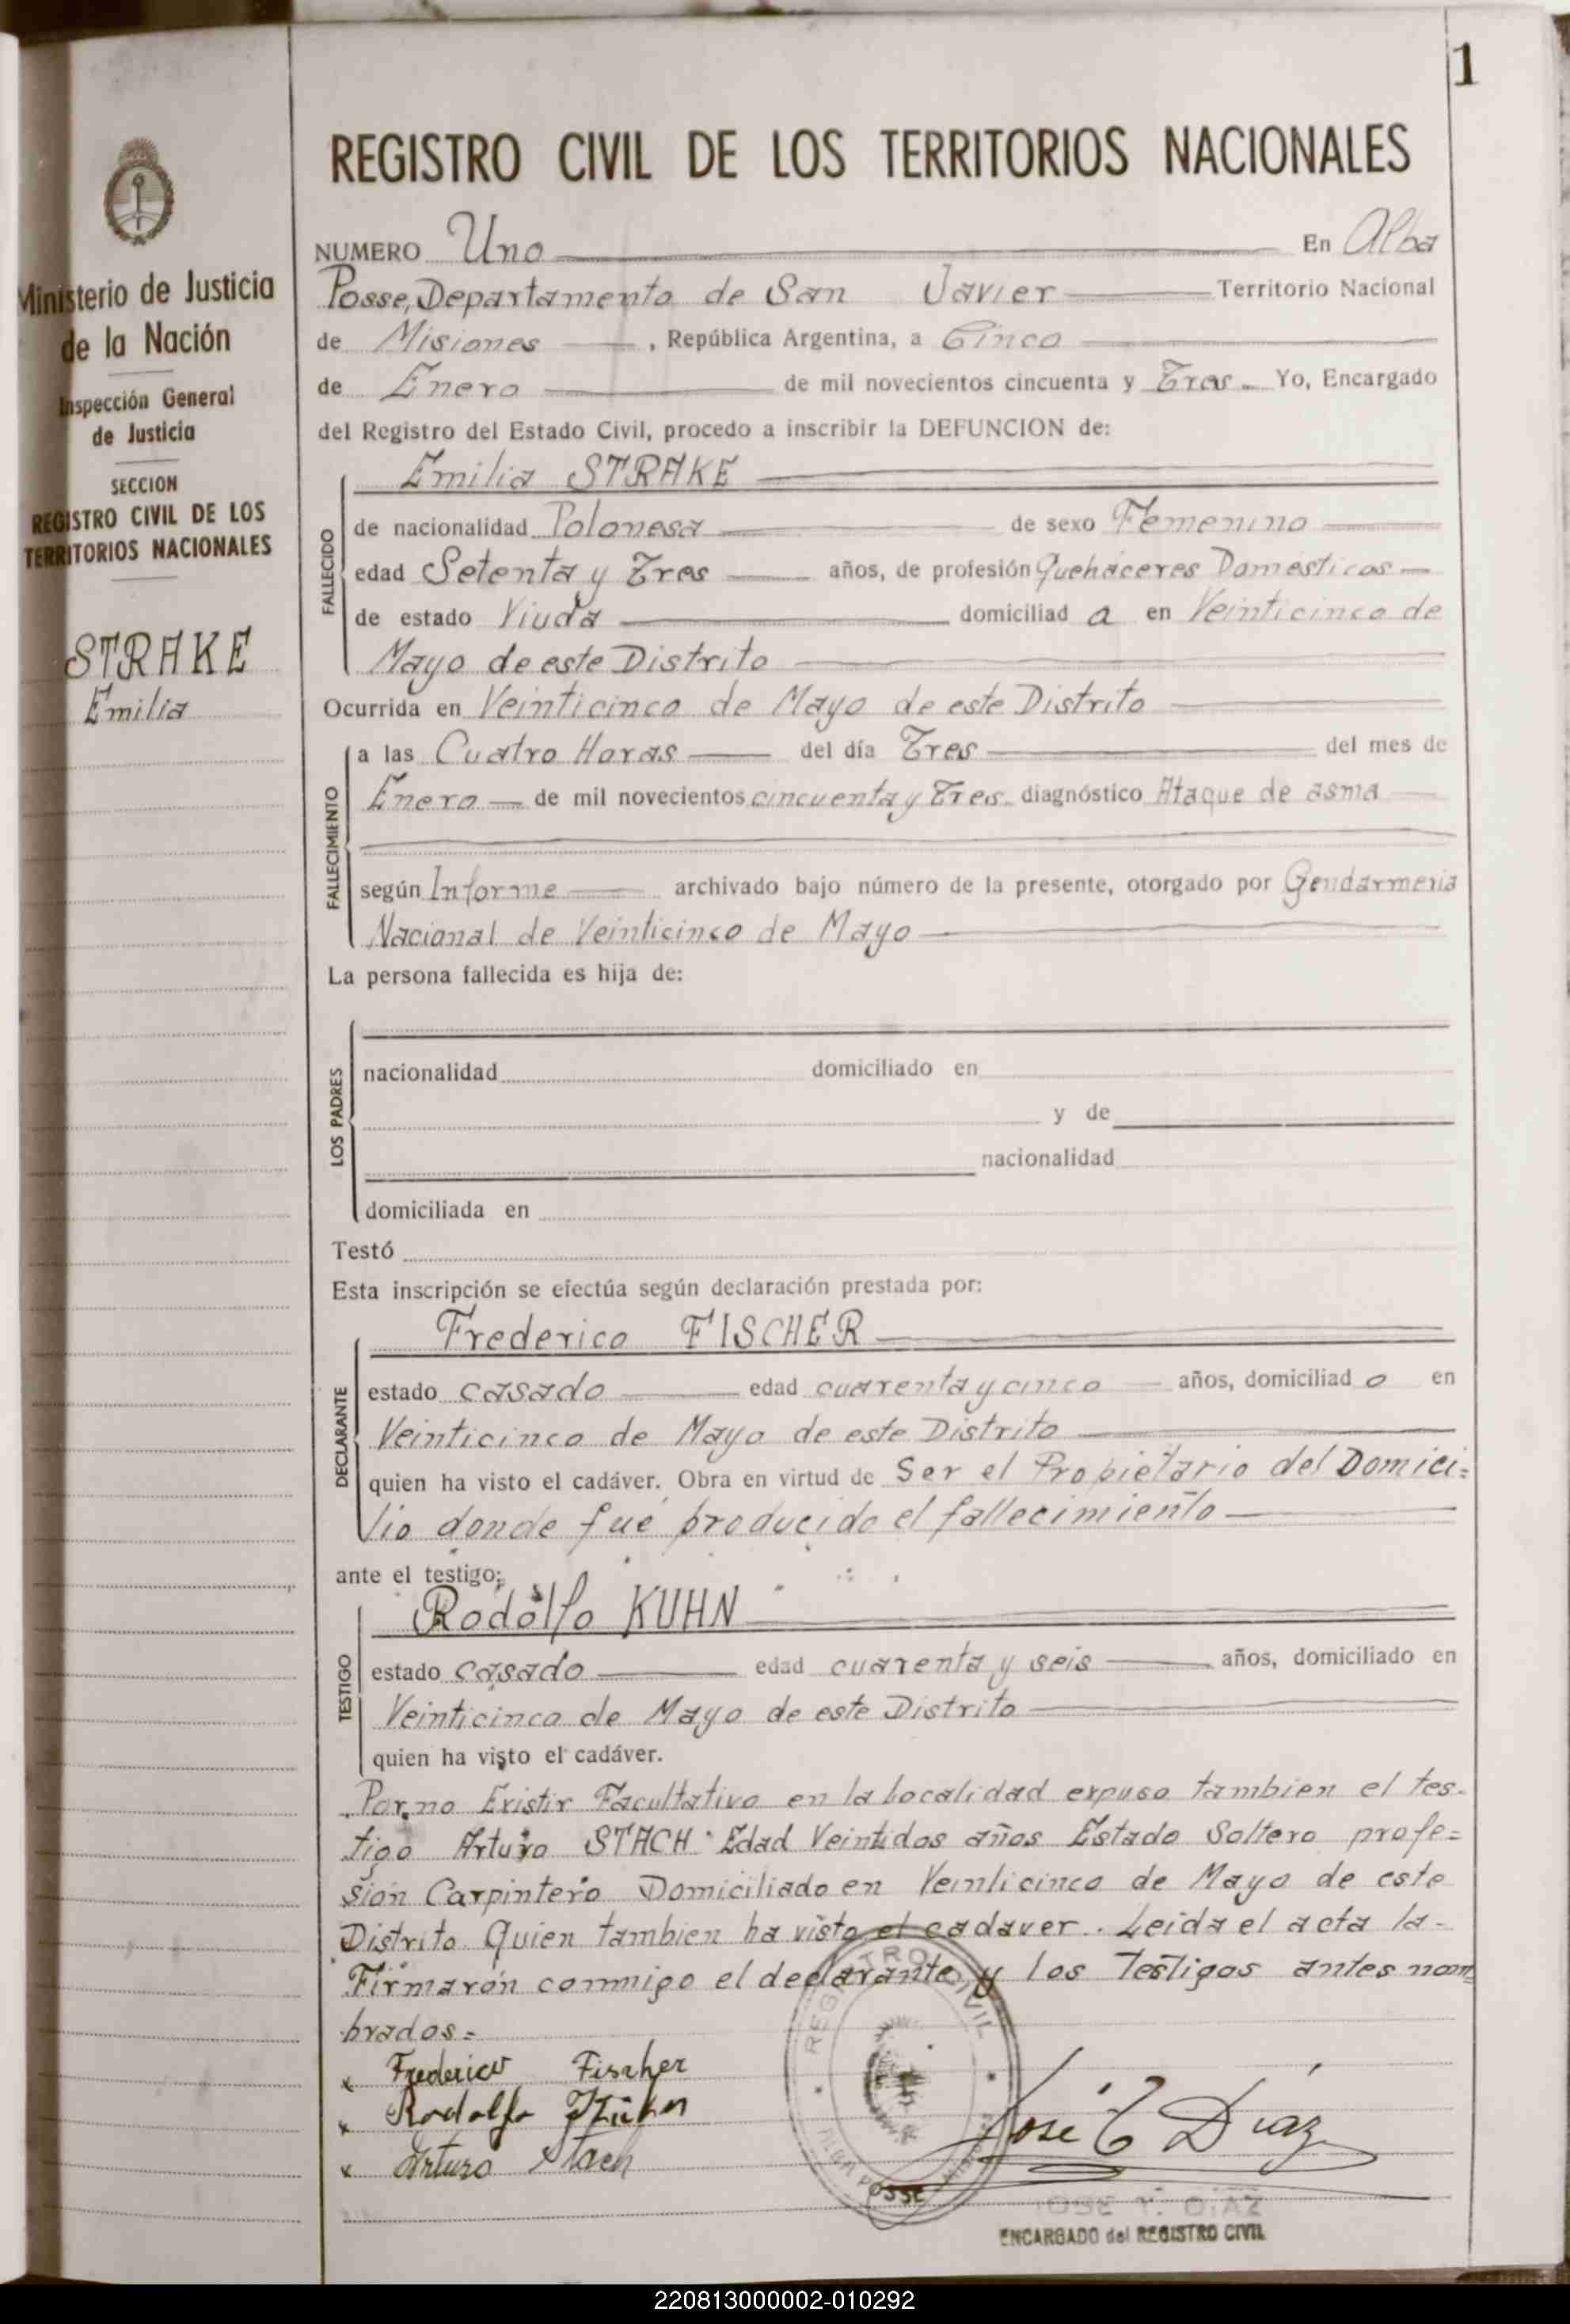 1
REGISTRO CIVIL DE LOS TERRITORIOS NACIONALES
Ministerio de Justicia
de la Nación
Inspección General
de Justicia
SECCION
REGISTRO CIVIL DE LOS
TERRITORIOS NACIONALES
STRAKE
Emilia
NUMERO Uno En Alba
Posse, Departamento de San Javier Territorio Nacional
de Misiones , República Argentina, a Cinco
de Enero de mil novecientos cincuenta y Tres Yo, Encargado
del Registro del Estado Civil, procedo a inscribir la DEFUNCION de:
FALLECIDO
Emilia STRAKE
de nacionalidad Polonesa de sexo Femenino
edad Setenta y Tres años, de profesión Quehaceres Domesticos
de estado Viuda domiciliad a en Veinticinco de
Mayo de este Distrito
Ocurrida en Veinticinco de Mayo de este Distrito
FALLECIMIENTO
a las Cuatro Horas del día Tres del mes de
Enero de mil novecientos cincuenta y Tres diagnóstico Ataque de asma
según Informe archivado bajo número de la presente, otorgado por Gendarmeria
Nacional de Veinticinco de Mayo
La persona fallecida es hija de:
LOS PADRES
nacionalidad domiciliado en
y de
nacionalidad
domiciliada en
Testó
Esta inscripción se efectúa según declaración prestada por:
DECLARANTE
Frederico FISCHER
estado casado edad cuarenta y cinco años, domiciliad o en
Veinticinco de Mayo de este Distrito
quien ha visto el cadáver. Obra en virtud de Ser el Propietario del Domici=
lio donde fué producido el fallecimiento
ante el testigo:
TESTIGO
Rodolfo KUHN
estado casado edad cuarenta y seis años, domiciliado en
Veinticinco de Mayo de este Distrito
quien ha visto el cadáver.
Por no Existir Facultativo en la Localidad expuso tambien el tes-
tigo Arturo STACH Edad Veintidos años Estado Soltero profe=
sión Carpintero Domiciliado en Veinticinco de Mayo de este
Distrito. Quien tambien ha visto el cadaver. Leida el acta la-
Firmarón conmigo el declarante y los Testigos antes nom
brados=
x Frederico Fischer
x Rodolfo Kühn
x Arturo Stach
REGISTRO CIVIL
ALBA POSSE
José Y Díaz
JOSE Y. DIAZ
ENCARGADO del REGISTRO CIVIL
220813000002-010292